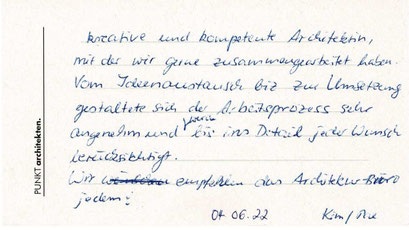 kreative und kompetente Architektin,
mit der wir gerne zusammengearbeitet haben.
Vom Ideenaustausch bis zur Umsetzung
gestaltete sich der Arbeitsprozess sehr
angenehm und wurde bis ins Detail jeder Wunsch
berücksichtigt.
Wir empfehlen das Architektur BÜRO
jedem!
04 06.22
PUNKT architekten.